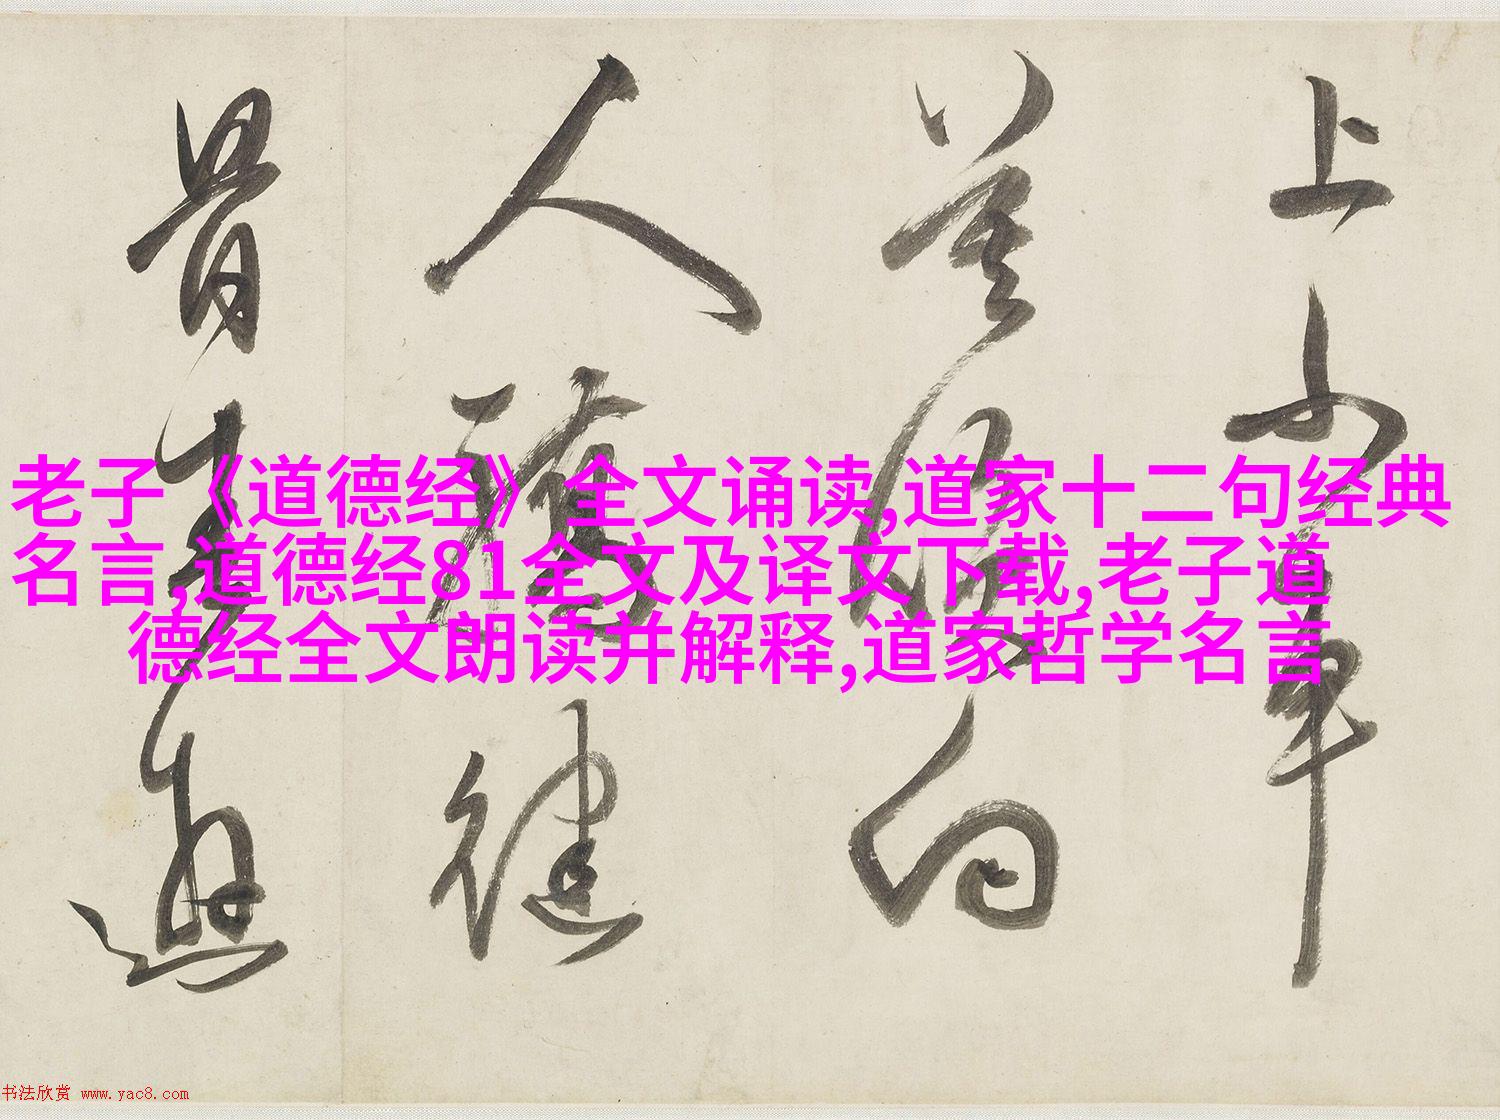 上小車
向
人健
老子《道德经》全文诵读,道家十二句经典
名言,道德经81全文及译文下载,老子道
德经全文朗读并解释,道家哲学名言
书法欣赏 www.yac8.com